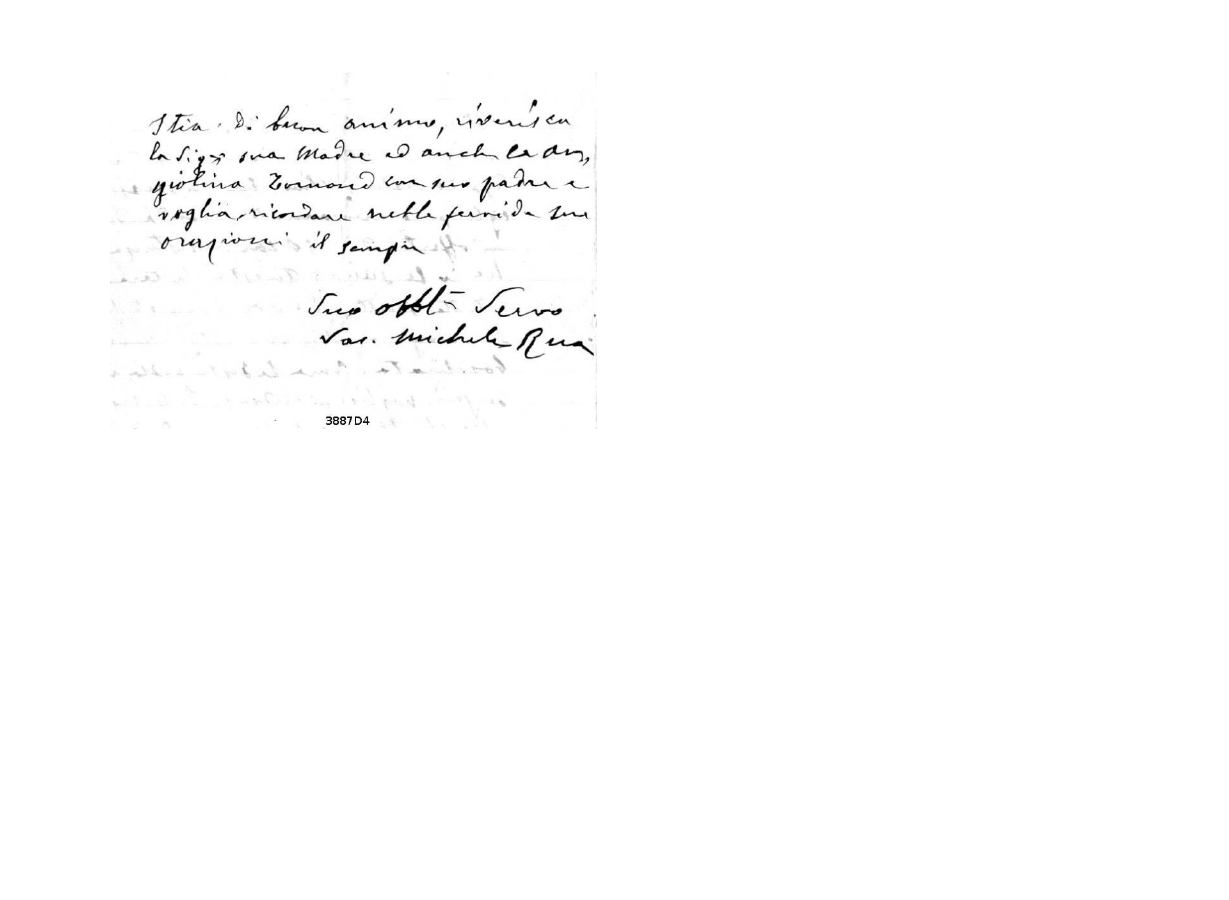 Stia di buon animo, riverisca
la Sigra sua Madre ed anche la An,
giolina con suo padre e
voglia ricordare nelle fervide sue
orazioni il sempre
Suo obblo Servo
Sac. Michele Rua
3887D4